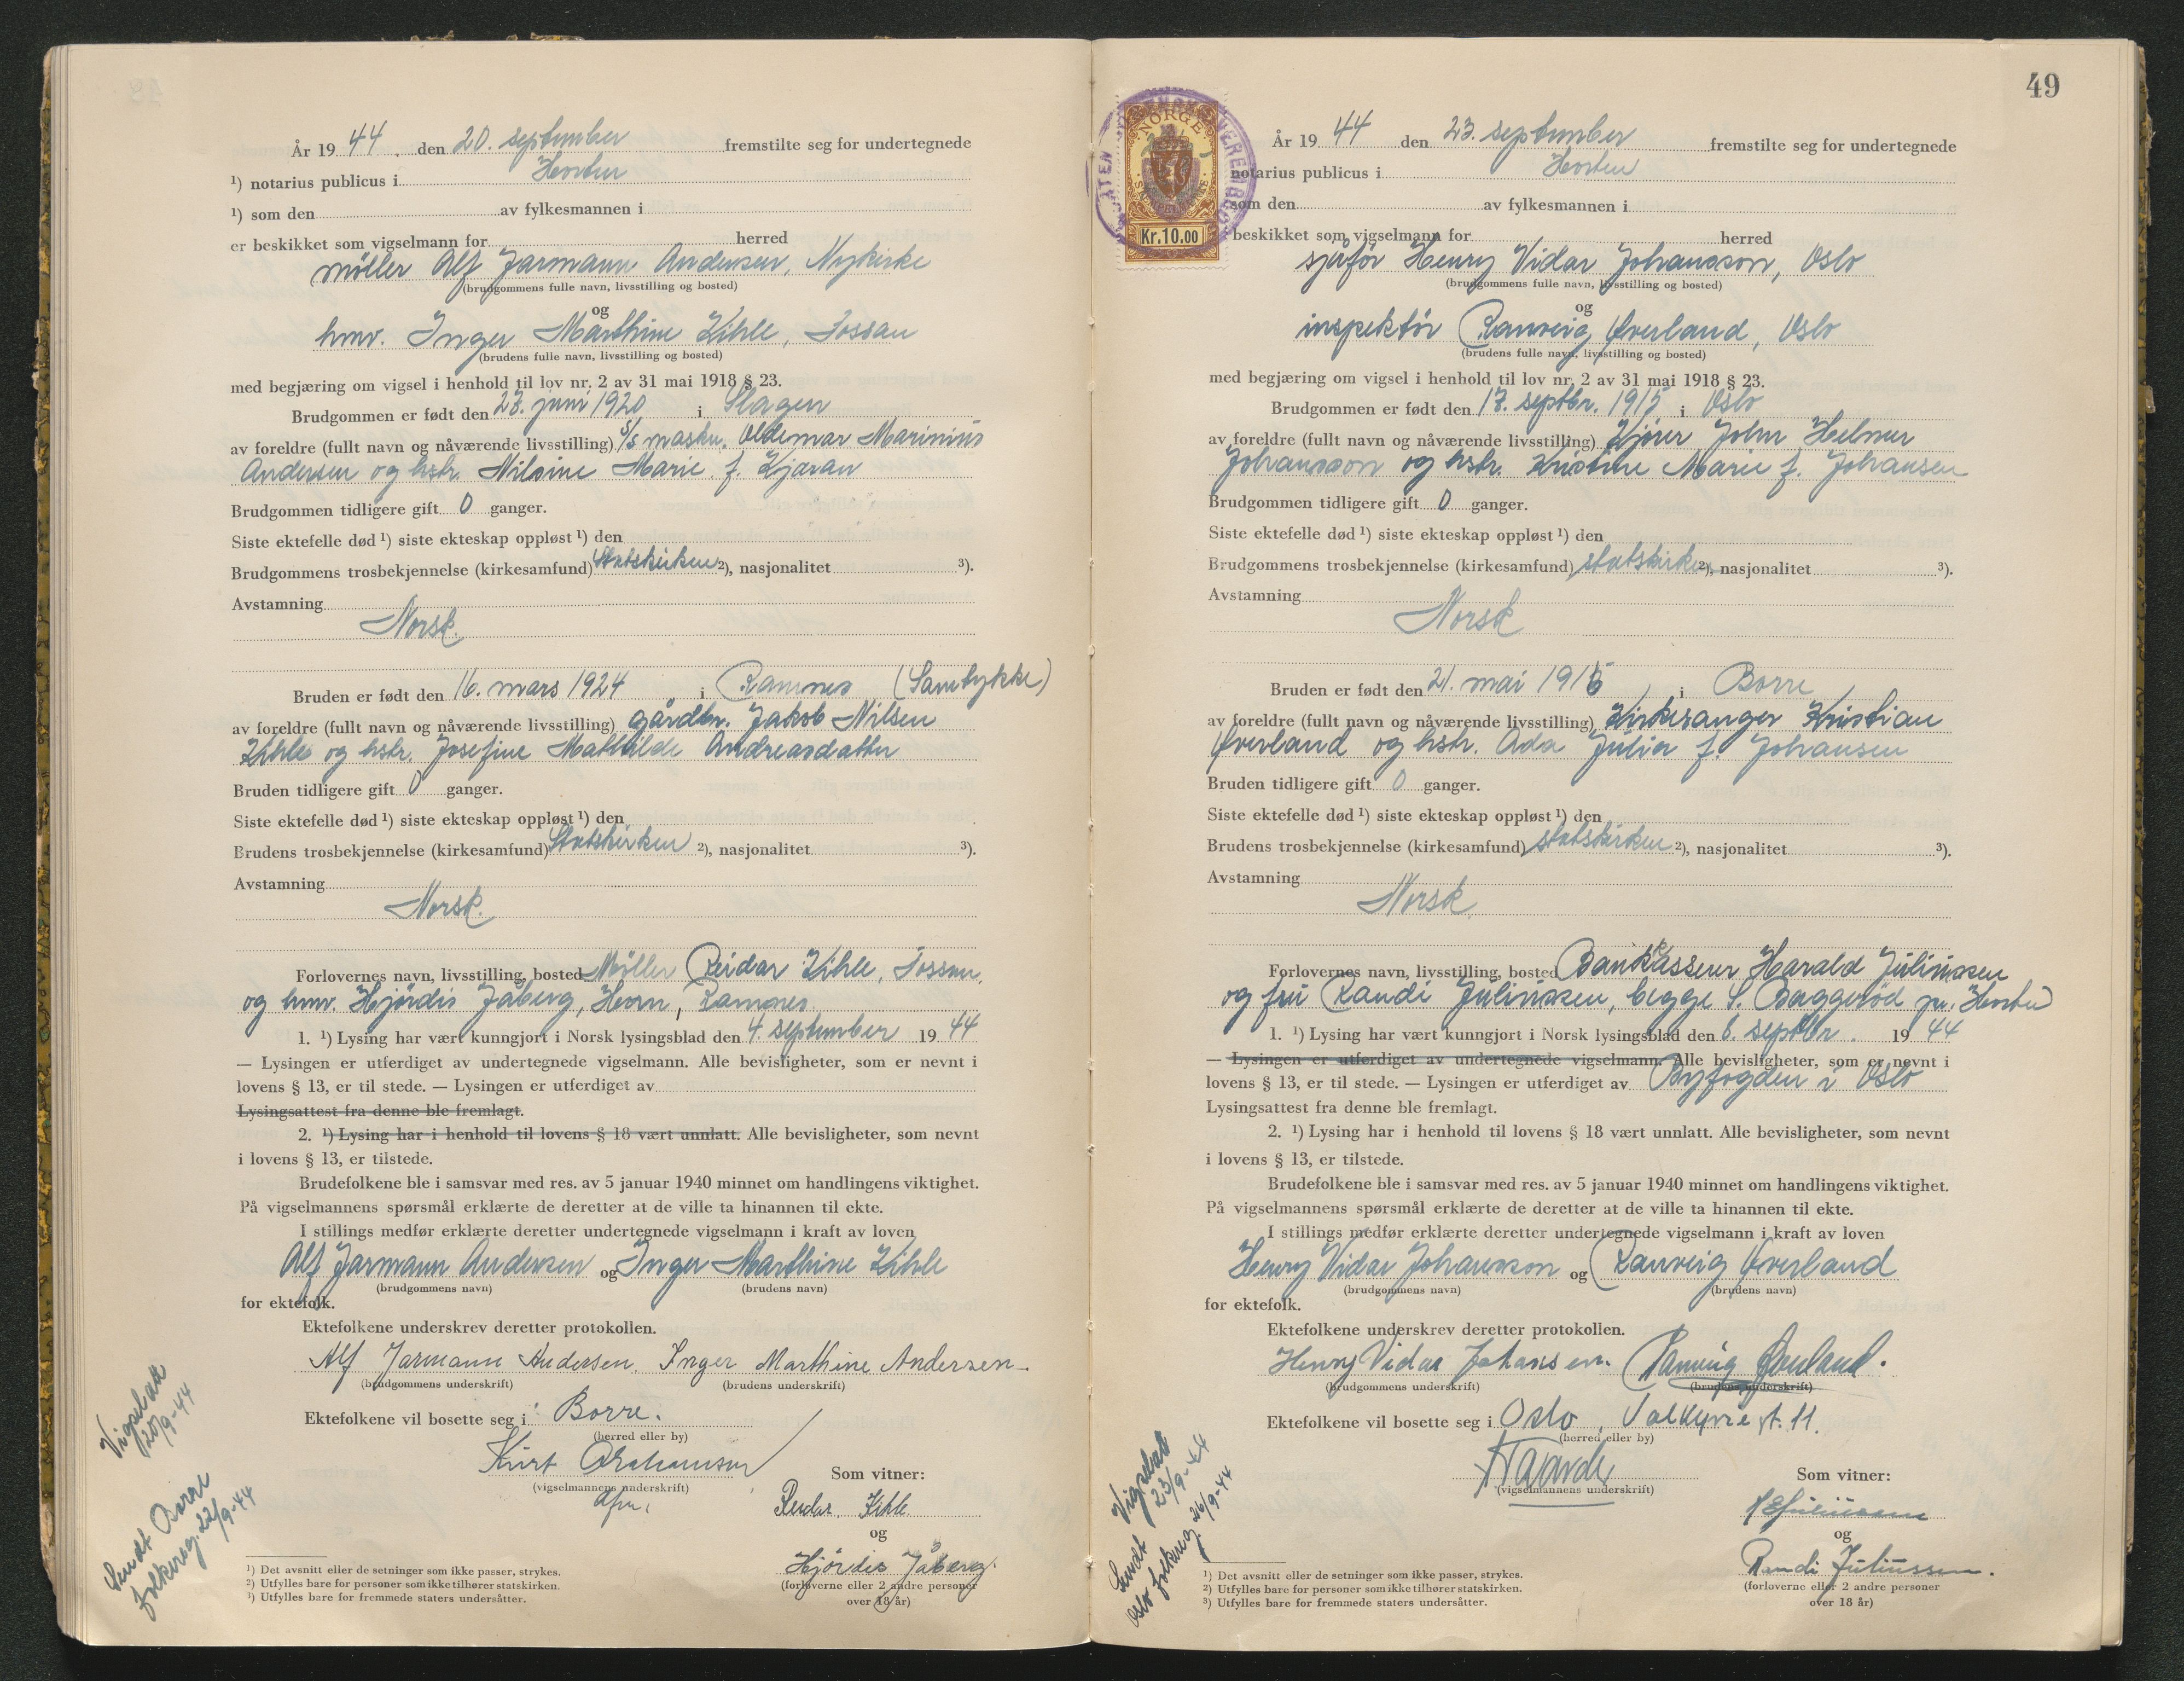 År 19 44. den 20. september fremstilte seg for undertegnede
¹) notarius publicus i Horten
¹) som den av fylkesmannen i
er beskikket som vigselmann for herred
møller Alf Jarmann Andersen, Nykirke
(brudgommens fulle navn, livsstilling og bosted)
og
hmv. Inger Marthine Kihle, Fossan
(brudens fulle navn, livsstilling og bosted)
med begjæring om vigsel i henhold til lov nr. 2 av 31 mai 1918 § 23.
Brudgommen er født den 27. juni 1920 i Slagen
av foreldre (fullt navn og nåværende livsstilling) s/s maskn. Oldemar Marinius
Andersen og hstr. Nilsine Marie f. Kjæran
Brudgommen tidligere gift 0 ganger.
Siste ektefelle død ¹) siste ekteskap oppløst ¹) den
Brudgommens trosbekjennelse (kirkesamfund) Statskirken ²), nasjonalitet ³).
Avstamning
Norsk.
Bruden er født den 16. mars 1924 i Ramnes (Samtykke)
av foreldre (fullt navn og nåværende livsstilling) gårdbr. Jakob Nilsen
Kihle og hstr. Josefine Mathilde Andreasdatter
Bruden tidligere gift 0 ganger.
Siste ektefelle død ¹) siste ekteskap oppløst ¹) den
Brudens trosbekjennelse (kirkesamfund) Statskirken ²), nasjonalitet ³).
Avstamning
Norsk.
Forlovernes navn, livsstilling, bosted Møller Reidar Kihle, Fossan,
og hmv. Hjördis Jåberg, Horn, Ramnes
1. ¹) Lysing har vært kunngjort i Norsk lysingsblad den 4. september 19 44
— Lysingen er utferdiget av undertegnede vigselmann. Alle bevisligheter, som er nevnt i
lovens § 13, er til stede. — Lysingen er utferdiget av
Lysingsattest fra denne ble fremlagt.
2. ¹) Lysing har i henhold til lovens § 18 vært unnlatt. Alle bevisligheter, som nevnt
i lovens § 13, er tilstede.
Brudefolkene ble i samsvar med res. av 5 januar 1940 minnet om handlingens viktighet.
På vigselmannens spørsmål erklærte de deretter at de ville ta hinannen til ekte.
I stillings medfør erklærte deretter undertegnede vigselmann i kraft av loven
Alf Jarmann Andersen og Inger Marthine Kihle
(brudgommens navn) (brudens navn)
for ektefolk.
Ektefolkene underskrev deretter protokollen.
Alf Jarmann Andersen. Inger Marthine Andersen
(brudgommens underskrift) (brudens underskrift)
Ektefolkene vil bosette seg i Borre.
(herred eller by)
Kurt
(vigselmannens underskrift)
Som vitner:
Reidar Kihle
og
Hjördis Jåberg
(forloverne eller 2 andre personer
over 18 år)
Vigselatt
20/9-44
Sendt Borre
folkereg. 22/9-44
¹) Det avsnitt eller de setninger som ikke passer, strykes.
²) Utfylles bare for personer som ikke tilhører statskirken.
³) Utfylles bare for fremmede staters undersåtter.
49
NORGE
Kr.10.00
År 19 44 den 23. september fremstilte seg for undertegnede
notarius publicus i Horten
som den av fylkesmannen i
beskikket som vigselmann for herred
sjåför Henry Vidar Johansson, Oslo
(brudgommens fulle navn, livsstilling og bosted)
og
inspektör Ranveig Øverland, Oslo
(brudens fulle navn, livsstilling og bosted)
med begjæring om vigsel i henhold til lov nr. 2 av 31 mai 1918 § 23.
Brudgommen er født den 17. septbr. 1915 i Oslo
av foreldre (fullt navn og nåværende livsstilling) Kjører John Helmer
Johansson og hstr. Kristine Marie f. Johansen
Brudgommen tidligere gift 0 ganger.
Siste ektefelle død ¹) siste ekteskap oppløst ¹) den
Brudgommens trosbekjennelse (kirkesamfund) statskirken ²), nasjonalitet ³).
Avstamning
Norsk
Bruden er født den 21. mai 1916 i Borre
av foreldre (fullt navn og nåværende livsstilling) Kirkesanger Kristian
Øverland og hstr. Ada Julia f. Johansen
Bruden tidligere gift 0 ganger.
Siste ektefelle død ¹) siste ekteskap oppløst ¹) den
Brudens trosbekjennelse (kirkesamfund) statskirken ²), nasjonalitet ³).
Avstamning
Norsk
Forlovernes navn, livsstilling, bosted Bankkasserer Harald Juliussen
og fru Randi Juliussen, begge S. Baggeröd pr. Horten
1. ¹) Lysing har vært kunngjort i Norsk lysingsblad den 6. septbr. 19 44
— Lysingen er utferdiget av undertegnede vigselmann. Alle bevisligheter, som er nevnt i
lovens § 13, er til stede. — Lysingen er utferdiget av Byfogden i Oslo
Lysingsattest fra denne ble fremlagt.
2. ¹) Lysing har i henhold til lovens § 18 vært unnlatt. Alle bevisligheter, som nevnt
i lovens § 13, er tilstede.
Brudefolkene ble i samsvar med res. av 5 januar 1940 minnet om handlingens viktighet.
På vigselmannens spørsmål erklærte de deretter at de ville ta hinannen til ekte.
I stillings medfør erklærte deretter undertegnede vigselmann i kraft av loven
Henry Vidar Johansson og Ranveig Øverland
(brudgommens navn) (brudens navn)
for ektefolk.
Ektefolkene underskrev deretter protokollen.
Henry Vidar Johansen. Ranveig Øverland.
(brudgommens underskrift) (brudens underskrift)
Ektefolkene vil bosette seg i Oslo, Valkyrie st. 11.
(herred eller by)
(vigselmannens underskrift)
Som vitner:
Juliussen
og
Randi Juliussen.
(forloverne eller 2 andre personer
over 18 år)
Vigselatt
23/9-44
Sendt
Oslo folkereg. 26/9-44
¹) Det avsnitt eller de setninger som ikke passer, strykes.
²) Utfylles bare for personer som ikke tilhører statskirken.
³) Utfylles bare for fremmede staters undersåtter.